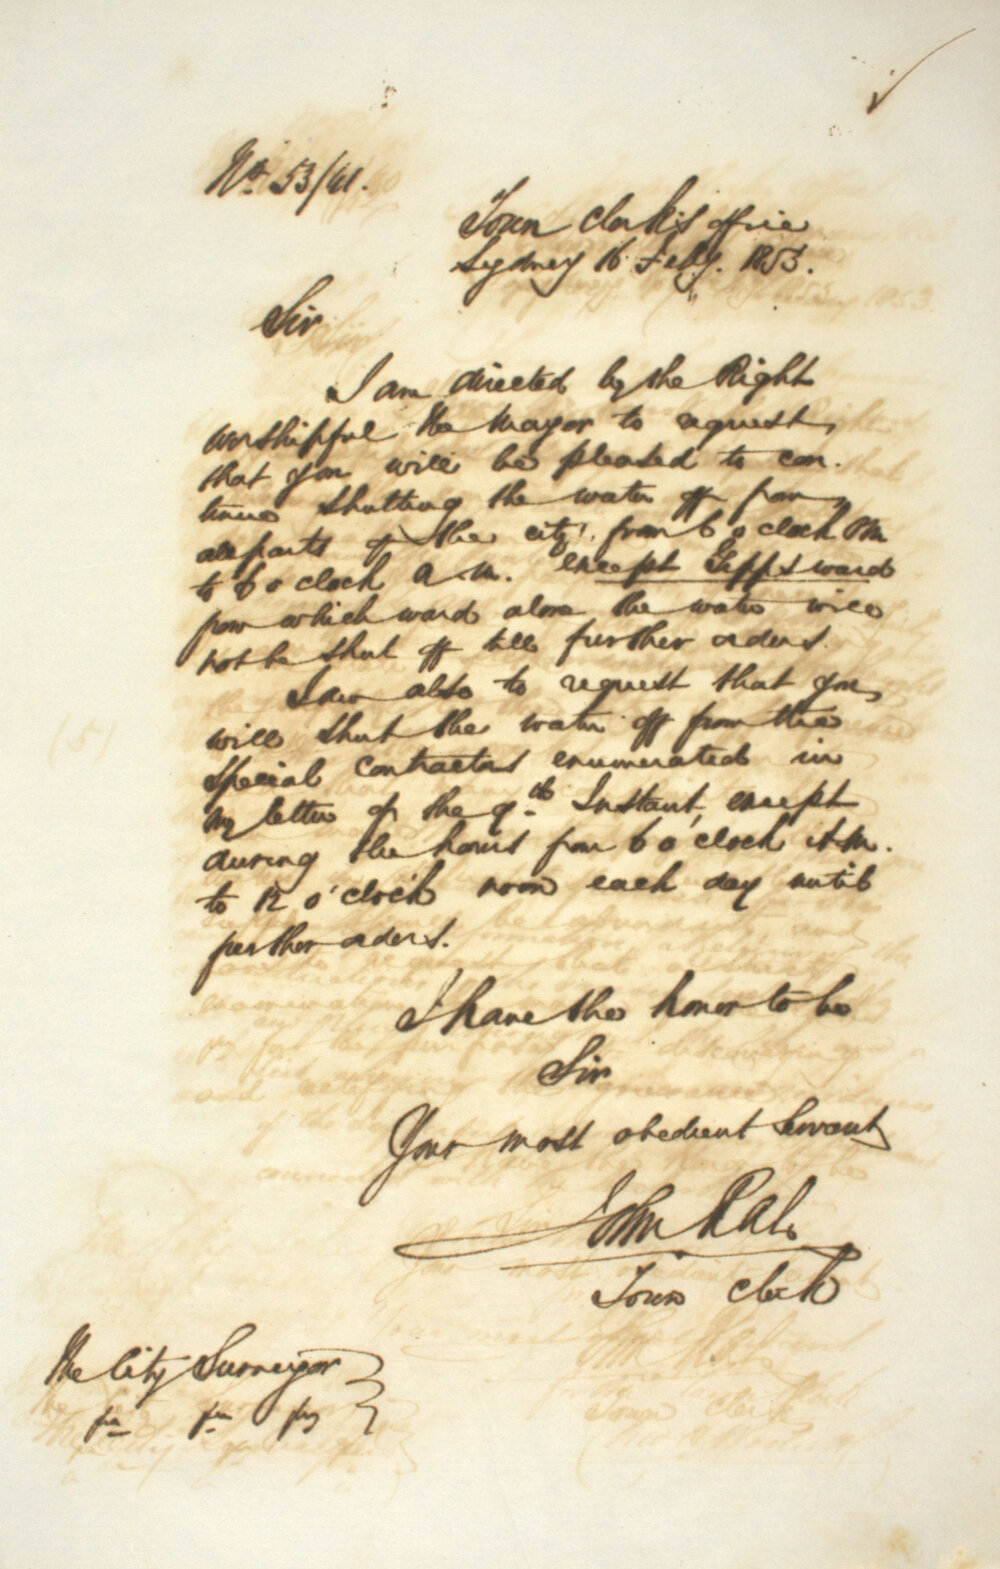 No. 53/61.
Town Clerk's office
Sydney 16 Feby. 1853.
Sir
I am directed by the Right
worshipful the Mayor to request,
that you will be pleased to con.
tinue shutting the water off from
all parts of the city, from 6 o clock PM
to 6 o clock A.M. except Gipps ward
from which ward alone the water will
not be shut off till further orders.
I am also to request that you
will shut the water off from the
special contractors enumerated in
my letter of the 9th Instant, except
during the hours from 6 o'clock A.M.
to 12 o'clock noon each day until
further orders.
I have the honor to be
Sir
Your most obedient Servant
John Rae
Town Clerk
The City Surveyor